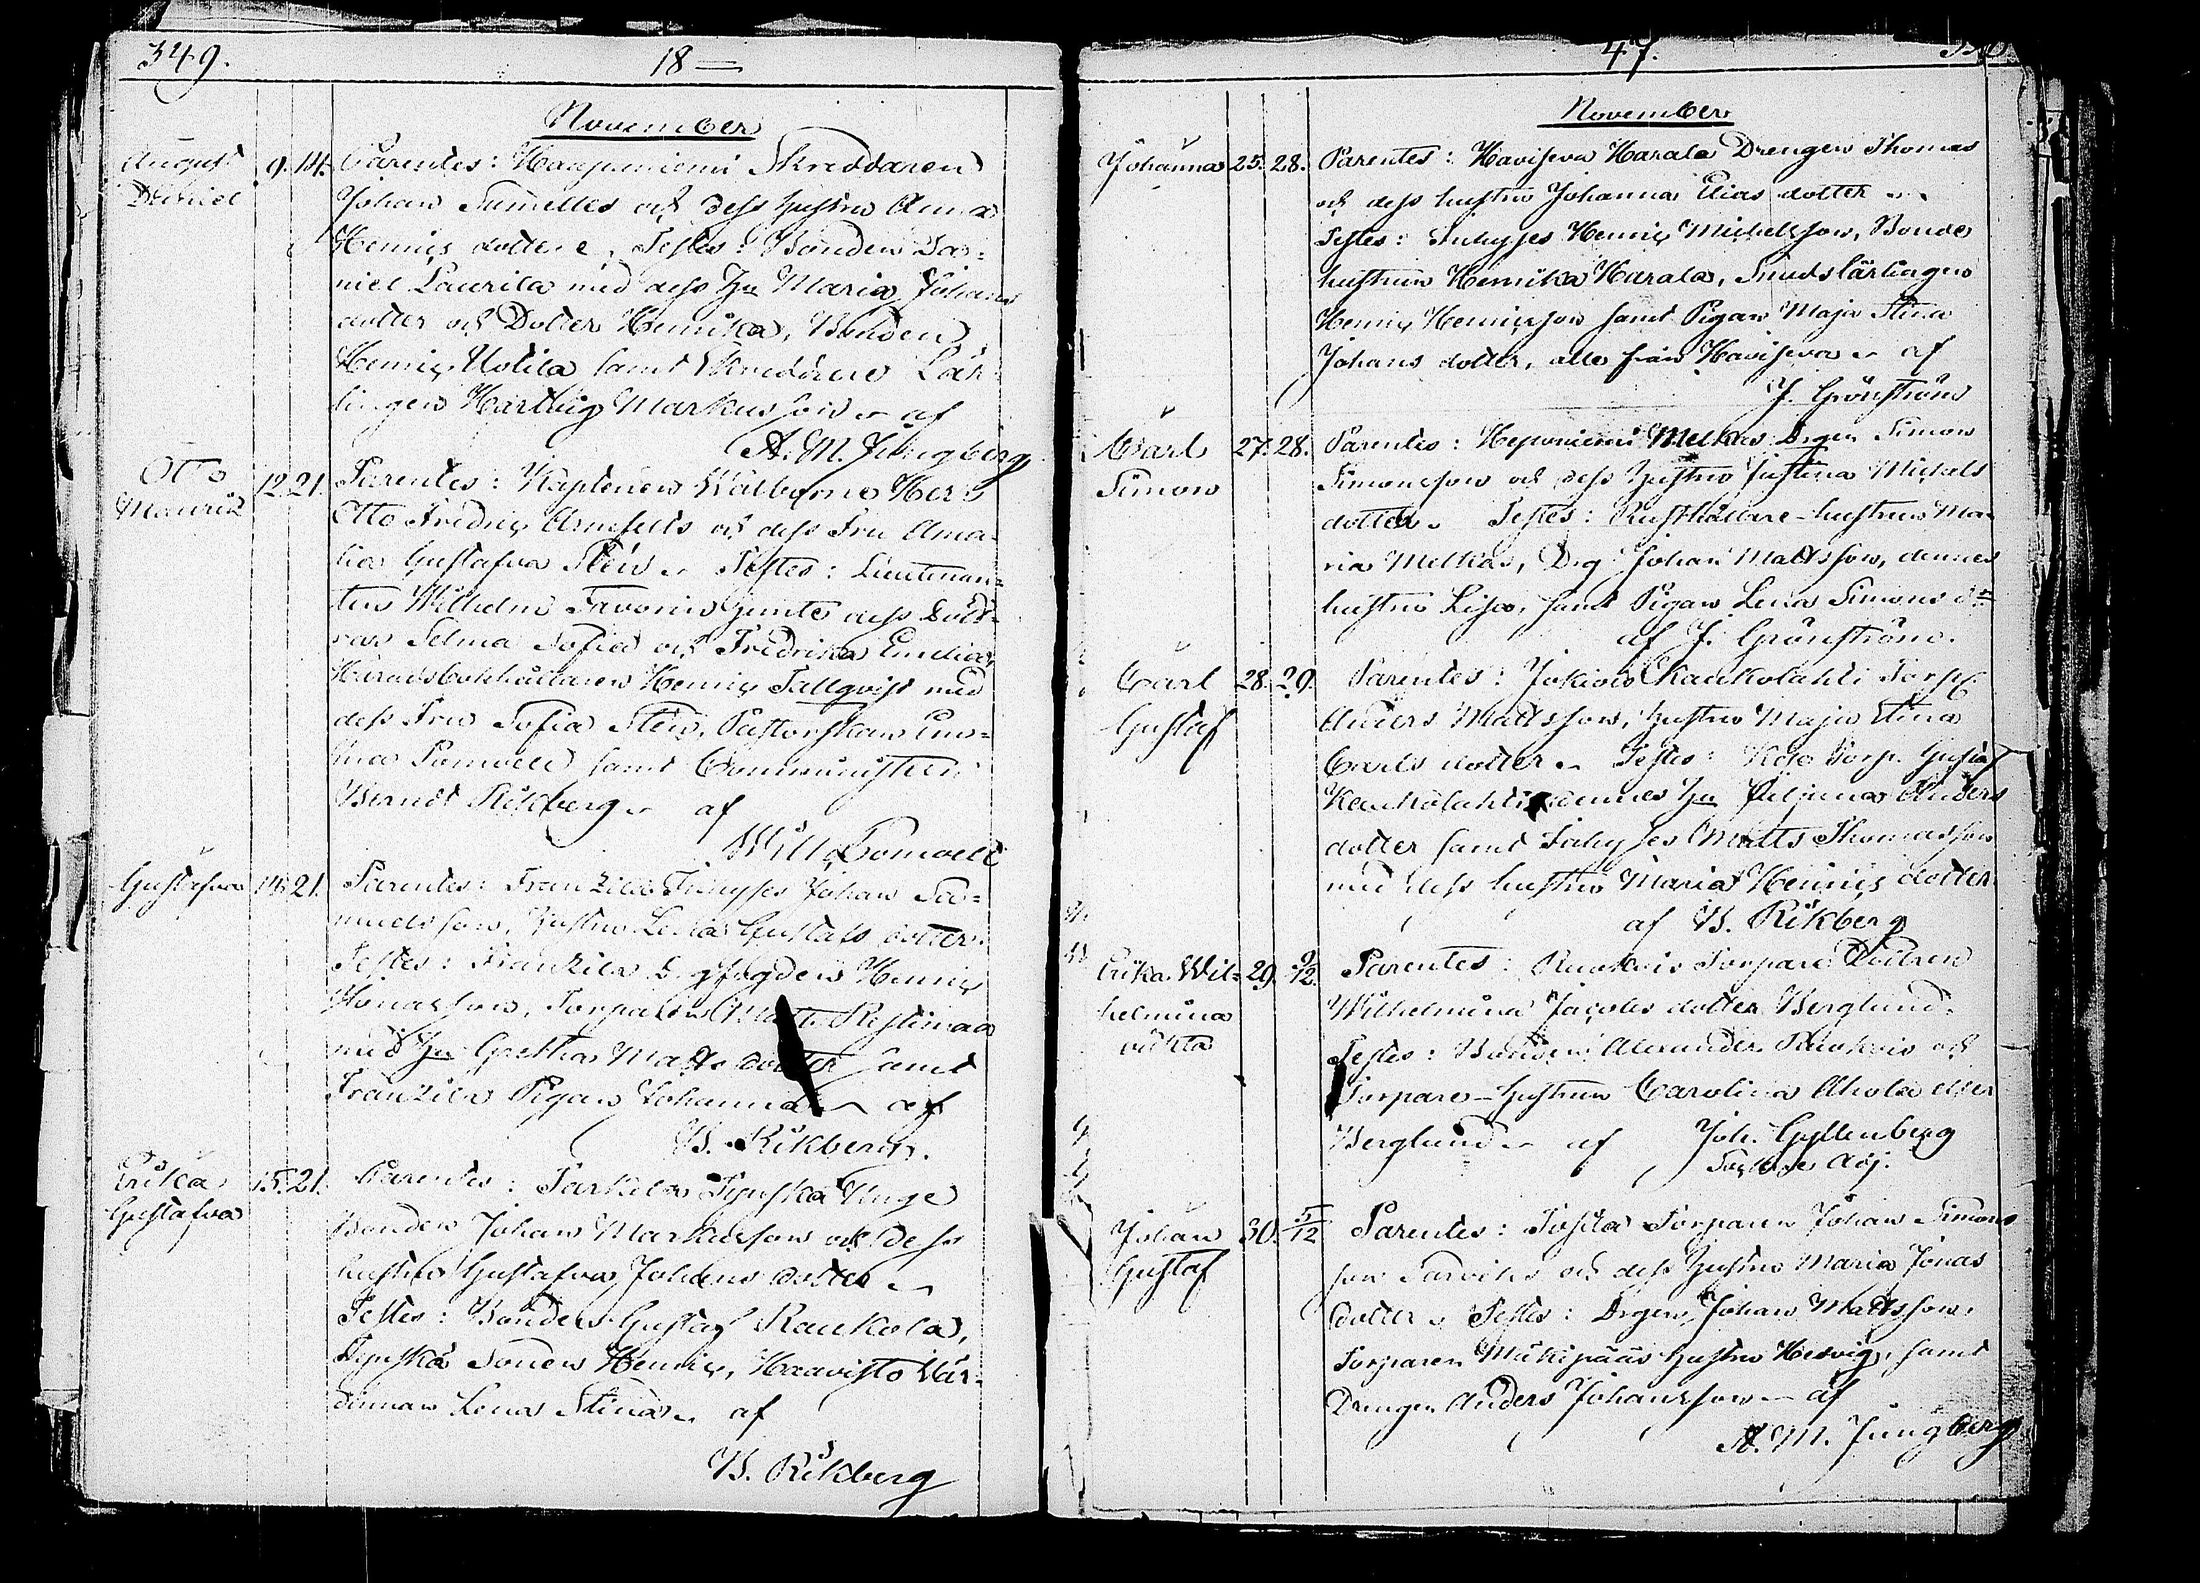 349.
18 —
November
August Daniel 9. 14. Parentes: Skreddaren
Johan Sumelles och dess hustru Anna
Henrics dotter. Testes: Bonden Da=
niel Laurila med dess hu Maria Johans
dotter och Dotter Henrika, Bonden
Henric Uotila samt Skreddare Lär-
lingen Hartvig Markusson af
A. M. Jungberg
Otto Mauritz 12. 21. Parentes: Kaptenen Wälborne Herr
Otto Fredric Armfelts och dess Fru Ama-
lia Gustafva Stén. Testes: Lieutenan=
ten Wilhelm dess Dött-
rar Selma Sofia och Fredrika Emelia,
Häradsbokhållaren Henric Tallqvist med
dess Fru Sofia Stén, Pastorskan
samt Comministern
Berndt Rikberg af
Gustafva 14. 21. Parentes: Franzila Inhyses Johan Sa=
muelsson, hustru Lena Gustafs dotter.
Testes: Franzila Henric
Jonasson, Torparen Matts
med hu Gretha Matts dotter samt
Franzila Pigan Johanna af
B. Rikberg.
Erika Gustafva 15. 21. Parentes: Unge
Bonden Johan Markusson och dess
hustru Gustafva Johans dotter
Testes: Bonden Gustaf Raukola,
Sonen Henric, Haavisto Vär-
dinnan Lena Stina af
B. Rikberg
47.
November
Johanna 25. 28. Parentes: Haviseva Harala Drengen Thomas
och dess hustru Johanna Elias dotter
Testes: Inhyses Henric Michelsson, Bonde
hustrun Henrika Harala, Smedslärlingen
Henric Henricsson samt Pigan Maja Stina
Johans dotter, alla från Haviseva af
J. Grönström
Carl Simon 27. 28. Parentes: Heponiemi Melkas Drgen Simon
Simonsson och dess hustru Justina Michels
dotter. Testes: Rusthållare-hustrun Ma-
ria Melkas, Drg. Johan Mattsson, dennes
hustru Lisa, samt Pigan Lena Simons dr
af J. Grönström.
Carl Gustaf 28. 29. Parentes: Jokiois Kaukolahti Torp.
Anders Mattsson, hustru Maja Stina
Carls dotter. Testes: Torp. Gustaf
Kaukolahti, dennes hu Anders
dotter samt Inhyses Matts Thomasson
med dess hustru Maria Henrics dotter
af B. Rikberg
Erika Wil= helmina oäkta 29. 9/12. Parentes: Torpare Dottren
Wilhelmina Jacobs dotter Berglund.
Testes: Bonden Alexander och
Torpare-hustrun Carolina Ahola eller
Berglund af Joh. Gyllenberg
Adj.
Johan Gustaf 30. 5/12 Parentes: Torparen Johan Simons
son och dess hustru Maria Jonas
dotter. Testes: Drgen Johan Mattsson,
Torparen Mäkipääs hustru Hedvig, samt
Drengen Anders Johansson af
A. M. Jungberg